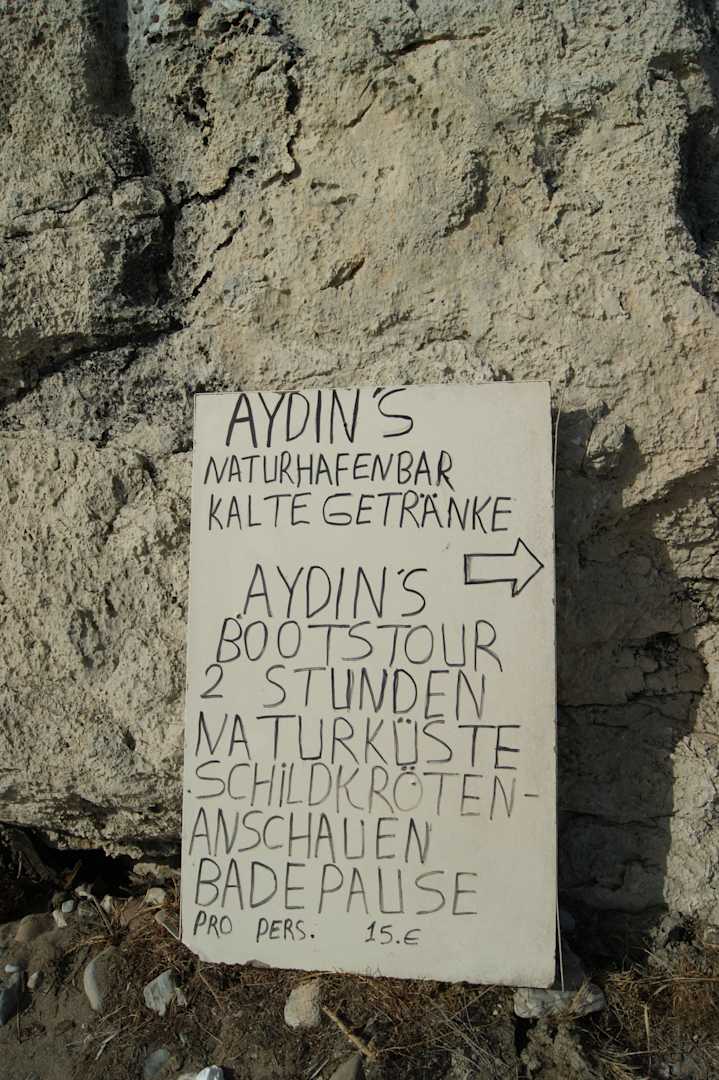 AYDIN'S
NATURHAFENBAR
KALTE GETRÄNKE
AYDIN'S
BOOTSTOUR
2 STUNDEN
NATURKÜSTE
SCHILDKRÖTEN-
ANSCHAUEN
BADEPAUSE
PRO PERS. 15.€